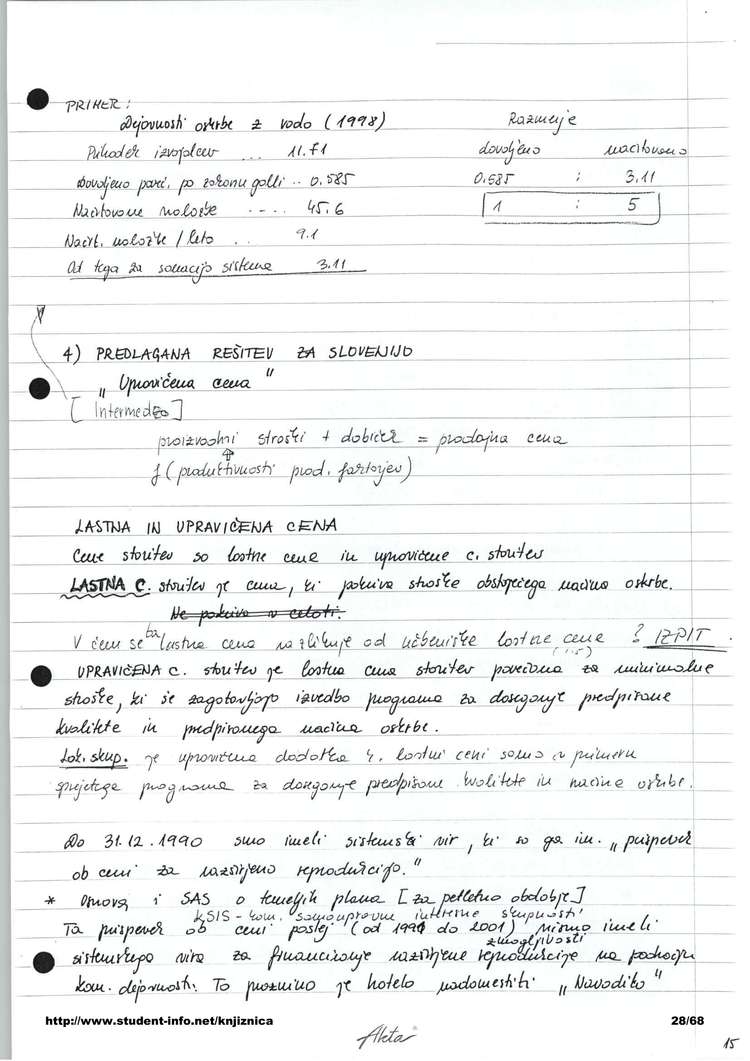 PRIMER:
Dejavnosti oskrbe z vodo (1998)
Razmerje
Prihodek izvajalcev ... 11.71
dovoljeno načrtovano
Dovoljeno pove. po zakonu golli .. 0.585
0.585 : 3.11
Načrtovane naložbe ---- 45.6
1 : 5
Načrt. naložbe / leto .. 9.1
Od tega za sanacijo sistema 3.11
4) PREDLAGANA REŠITEV ZA SLOVENIJO
„Upravičena cena"
[Intermedzo]
proizvodni stroški + dobiček = prodajna cena
f (produktivnosti prod. faktorjev)
LASTNA IN UPRAVIČENA CENA
Cene storitev so lastne cene in upravičene c. storitev
LASTNA C. storitev je cena, ki pokriva stroške obstoječega načina oskrbe.
Ne pokriva v celoti.
V čem se ta lastna cena razlikuje od učbeniške lastne cene ? IZPIT
UPRAVIČENA C. storitev je lastna cena storitev povečana za minimalne
stroške, ki še zagotavljajo izvedbo programa za doseganje predpisane
kvalitete in predpisanega načina oskrbe.
Lok. skup. je upravičena dodatka k lastni ceni samo v primeru
sprejetega programa za doseganje predpisane kvalitete in načina oskrbe.
Do 31.12.1990 smo imeli sistemski vir, ki so ga im. „prispevek
ob ceni za razširjeno reprodukcijo."
* Osnova i SAS o temeljih plana [za petletno obdobje]
KSIS - kom. samoupravne interesne skupnosti
Ta prispevek ob ceni poslej (od 1990 do 2001) nismo imeli
zmogljivosti
sistemskega vira za financiranje razširjene reprodukcije na področju
kom. dejavnosti. To praznino je hotelo nadomestiti „Navodilo"
http://www.student-info.net/knjiznica 28/68
Akta
15